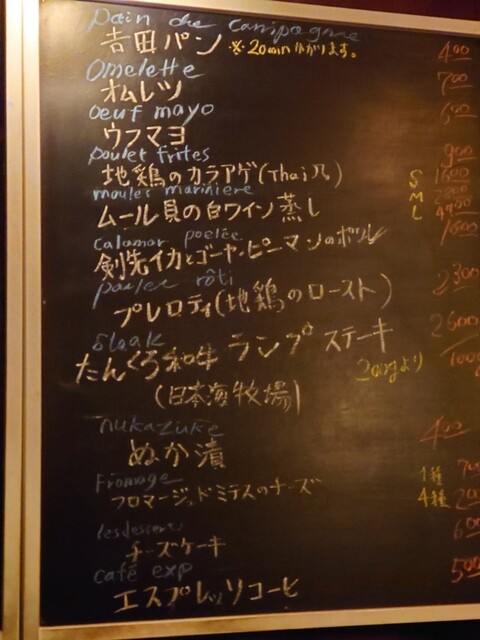 pain de campagne
吉田パン ※20minかかります。 400
Omelette 700
オムレツ
oeuf mayo 600
ウフマヨ
poulet frites 900
地鶏のカラアゲ(Thai風)
moules mariniere S 1600
ムール貝の白ワイン蒸し M L
calamar poelée
剣先イカとゴーヤ・ピーマンのポワレ
poulet rôti 2300
プレロティ(地鶏のロースト)
steak 2600
たんくろ和牛 ランプステーキ
200gより
(日本海牧場)
nukazuke 400
ぬか漬
Fromage 1種
フロマージュドミテスのチーズ 4種
les desserts
チーズケーキ
café exp
エスプレッソコーヒ